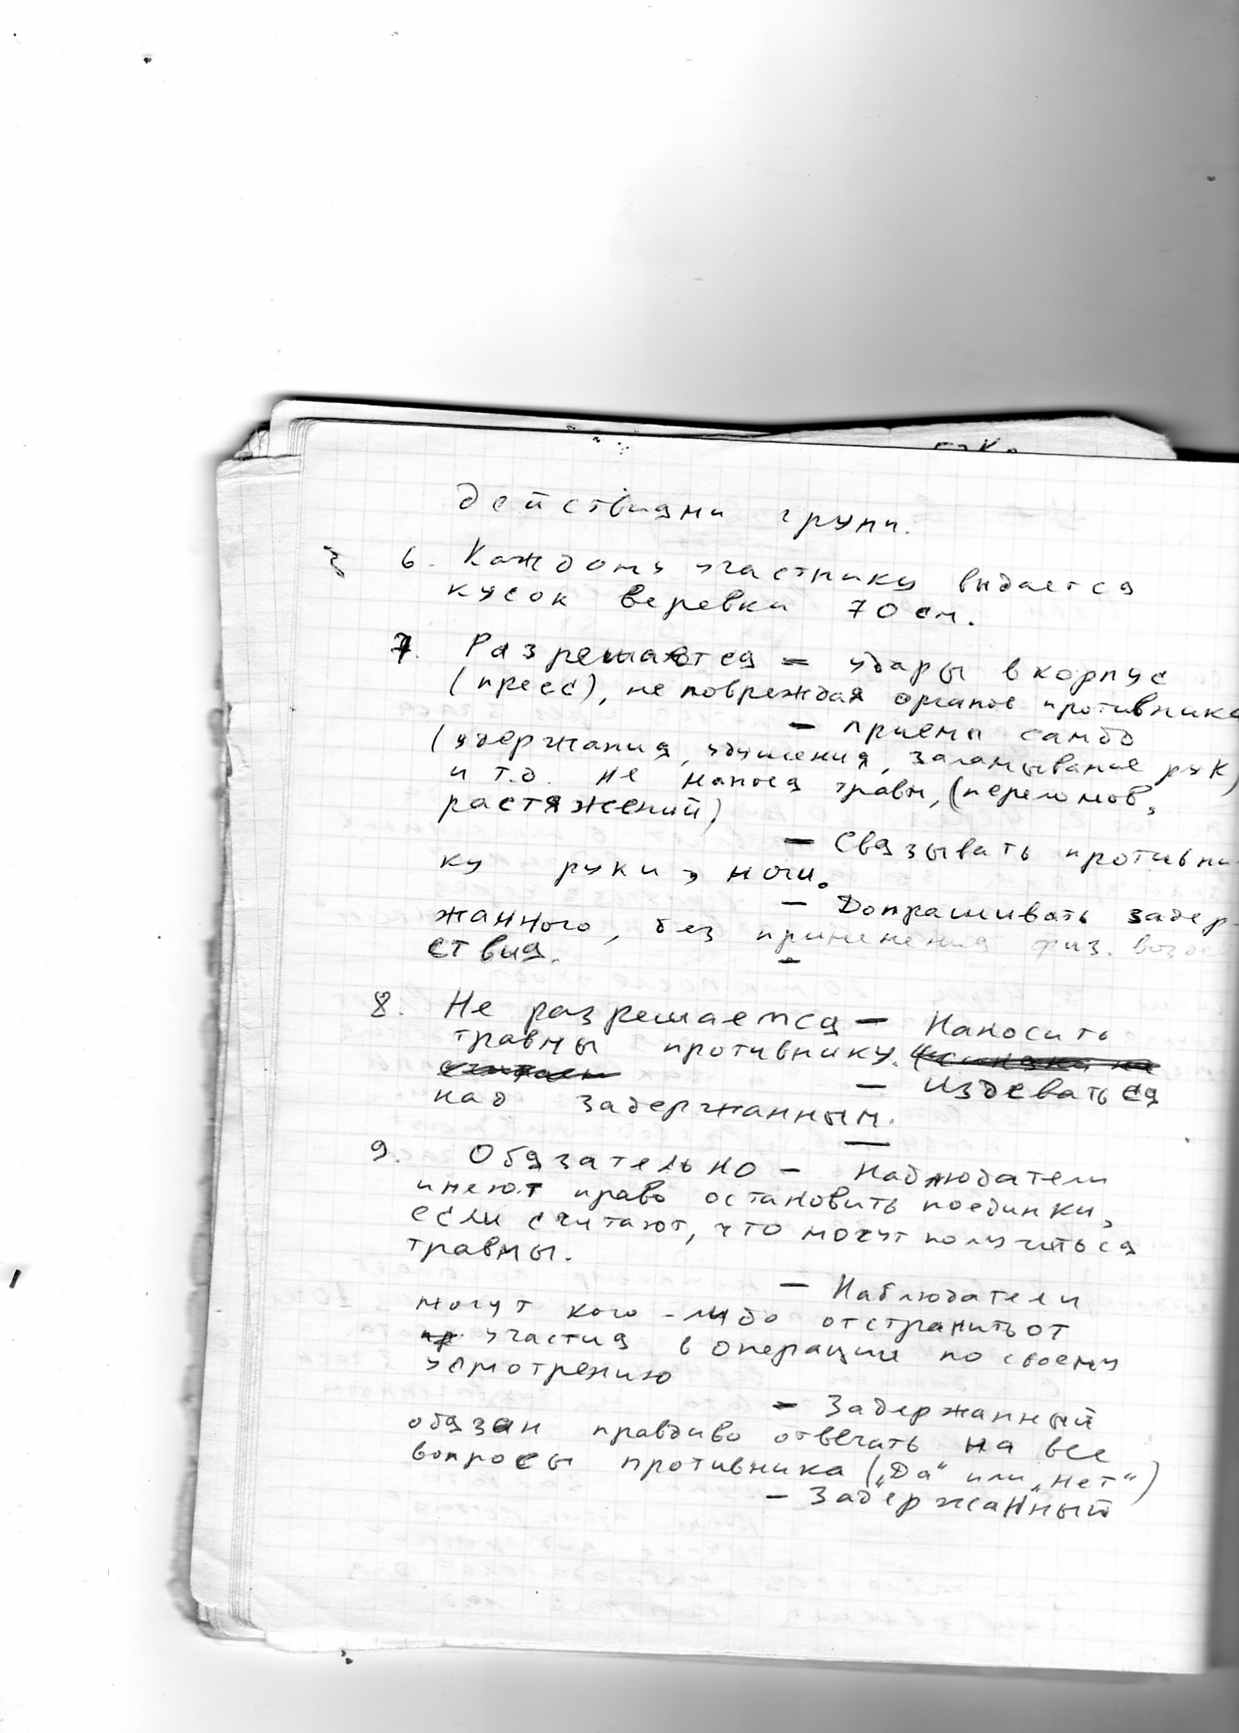 действиями групп.
6. Каждому участнику выдается
кусок веревки 70 см.
7. Разрешается – удары в корпус
(пресс), не повреждая органов противника
– приемы самбо
(удержания, удушения, заламывание рук)
и т.д. не нанося травм, (переломов,
растяжений)
– Связывать противни-
ку руки, ноги.
– Допрашивать задер-
жанного, без применения физ. возде
ствия.
–
8. Не разрешается – Наносить
травмы противнику.
– Издеваться
над задержанным.
–
9. Обязательно – Наблюдатели
имеют право остановить поединки,
если считают, что могут получиться
травмы.
– Наблюдатели
могут кого-либо отстранить от
участия в операции по своему
усмотрению
– Задержанный
обязан правдиво отвечать на все
вопросы противника („Да“ или „Нет“)
– Задержанный